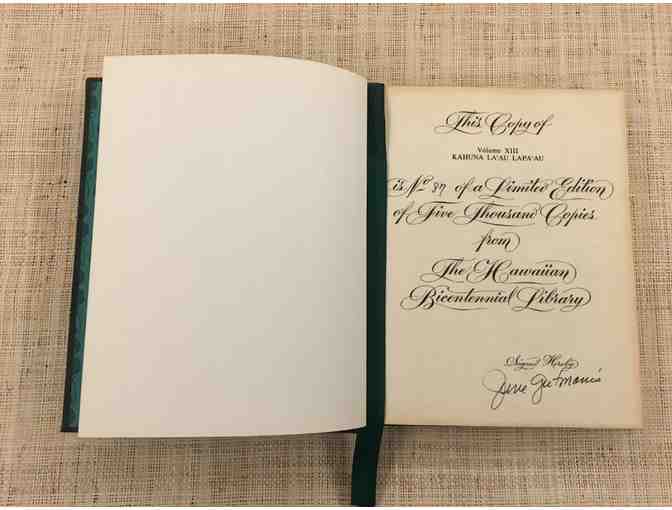 This Copy of
Volume XIII
KAHUNA LA'AU LAPA'AU
is No 87 of a Limited Edition
of Five Thousand Copies
from
The Hawaiian
Bicentennial Library
Signed Hereby
June Gutmanis